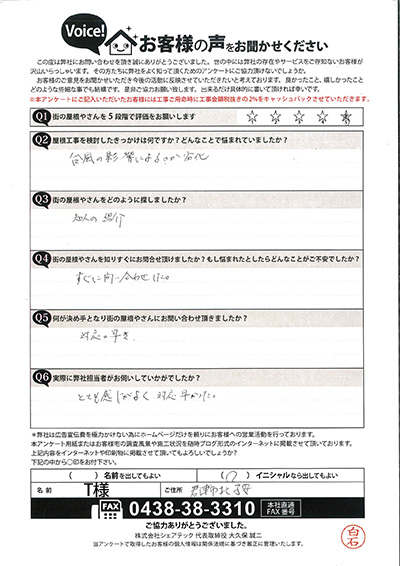 Voice!
お客様の声をお聞かせください
この度は弊社にお問い合わせを頂き誠にありがとうございました。世の中には弊社の存在やサービスをご存知ないお客様が
沢山いらっしゃいます。その方たちに弊社をよく知って頂くためのアンケートにご協力頂けないでしょうか。
お客様のご意見をお聞かせいただき今後の活動に反映させていただきたいと考えております。良かったこと、嬉しかったこと
どのような些細な事でも結構です。是非ご協力お願い致します。出来るだけ具体的に書いて頂ければ幸いです。
※本アンケートにご記入いただいたお客様には工事ご用命時に工事金額税抜きの2%をキャッシュバックさせていただきます。
Q1 街の屋根やさんを5段階で評価をお願いします ☆ ☆ ☆ ☆ ☆
Q2 屋根工事を検討したきっかけは何ですか？どんなことで悩まれていましたか？
台風の影響による 劣化
Q3 街の屋根やさんをどのように探しましたか？
知人の紹介
Q4 街の屋根やさんを知りすぐにお問合せ頂けましたか？もし悩まれたとしたらどんなことがご不安でしたか？
すぐに問い合わせした。
Q5 何が決め手となり街の屋根やさんにお問い合わせ頂きましたか？
対応の早さ
Q6 実際に弊社担当者がお伺いしていかがでしたか？
とても感じがよく 対応早かった。
＊弊社は広告宣伝費を極力かけない為にホームページだけを頼りにお客様への営業活動を行っております。
本アンケート用紙またはお客様宅の調査風景や施工状況を随時ブログ形式のインターネットに掲載させて頂いております。
上記内容をインターネットや印刷物に掲載させて頂いてもよろしいでしょうか？
下記の中から〇印をお付下さい。
（　　）名前を出してもよい （〇）イニシャルなら出してもよい
名前 T様 ご住所 君津市
FAX 0438-38-3310 本社直通 FAX番号
ご協力ありがとうございました。
株式会社シェアテック 代表取締役 大久保誠二
当アンケートで取得したお客様の個人情報は関係法規に基づき厳正に管理いたします。
白石